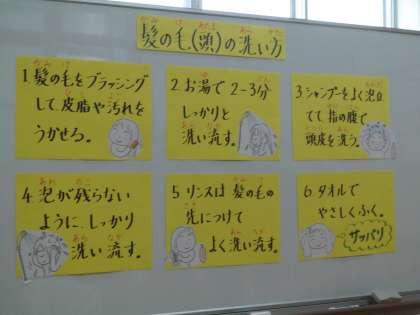 髪の毛(頭)の洗い方
1.髪の毛をブラッシング
して皮脂や汚れを
うかせる。
2.お湯で2-3分
しっかりと
洗い流す。
3.シャンプーをよく泡立
てて指の腹で
頭皮を洗う。
4.泡が残らない
ように、しっかり
洗い流す。
5.リンスは髪の毛の
先につけて
よく洗い流す。
6.タオルで
やさしくふく。
サッパリ